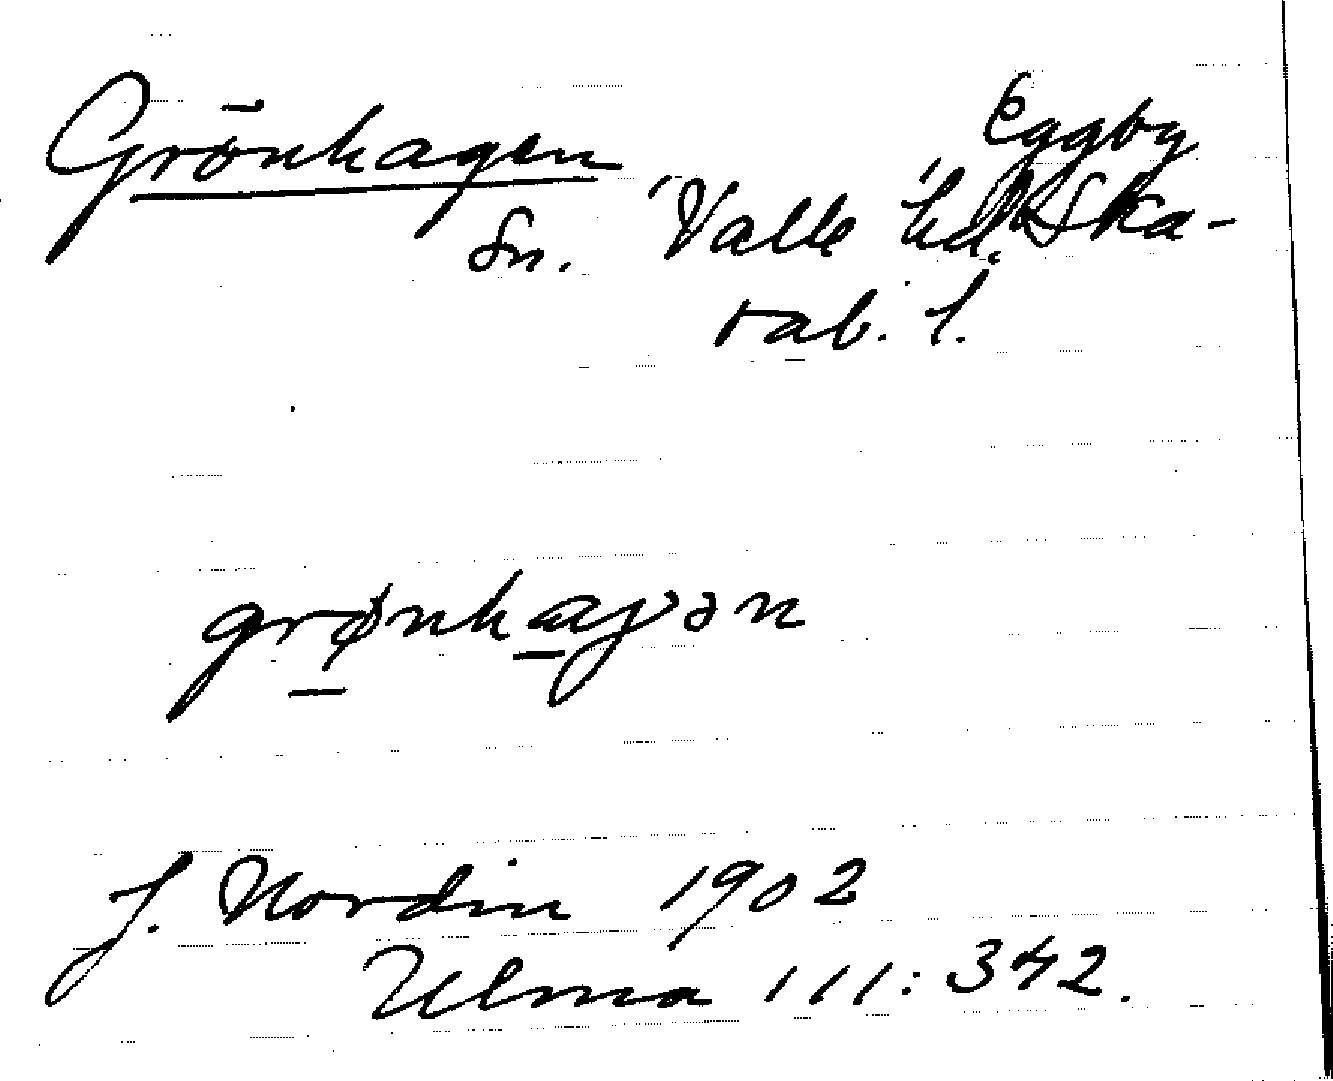 Grönhagen Eggby
Sn. Valle hd. Ska-
rab. l.
grønhaγən
J. Nordin 1902
Ulma 111: 342.